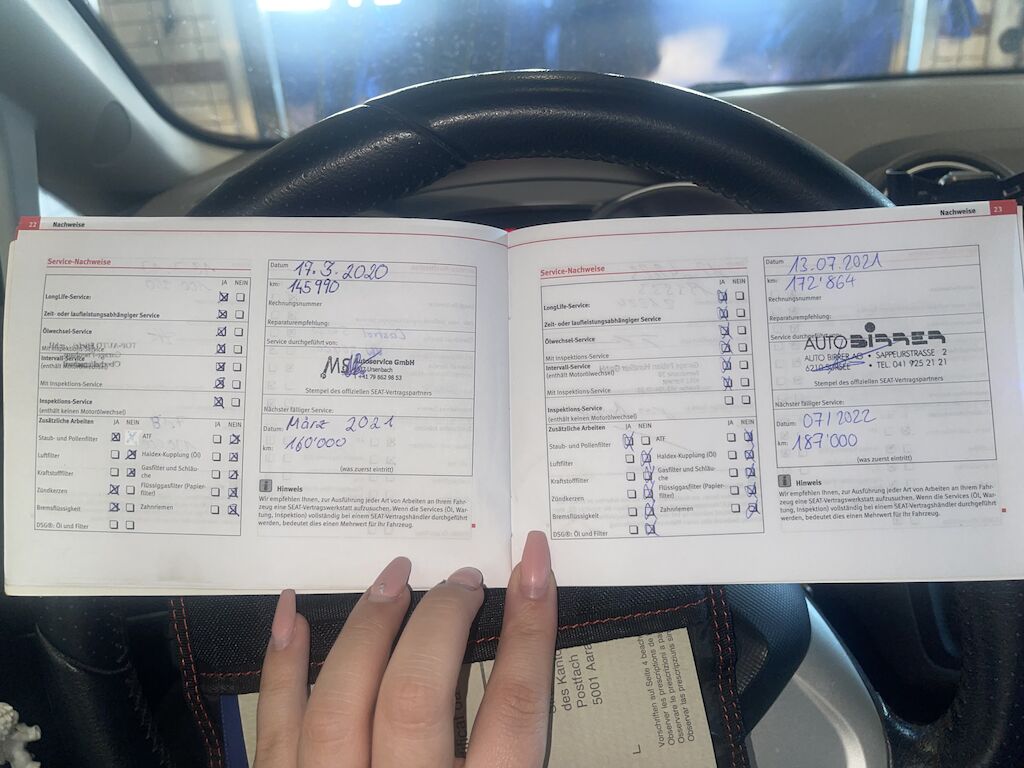 22 Nachweise
Service-Nachweise
JA NEIN
LongLife-Service:
Zeit- oder laufleistungsabhängiger Service
Ölwechsel-Service
Mit Inspektions-Service
Intervall-Service
(enthält Motorölwechsel)
Mit Inspektions-Service
Inspektions-Service
(enthält keinen Motorölwechsel)
Zusätzliche Arbeiten JA NEIN JA NEIN
Staub- und Pollenfilter ATF
Luftfilter Haldex-Kupplung (Öl)
Kraftstofffilter Gasfilter und Schläu-
che
Zündkerzen Flüssiggasfilter (Papier-
filter)
Bremsflüssigkeit Zahnriemen
DSG®: Öl und Filter
Datum 17.3.2020
km: 145990
Rechnungsnummer
Reparaturempfehlung:
Service durchgeführt von:
Autoservice GmbH
Urnerbach
+41 79 862 98 53
Stempel des offiziellen SEAT-Vertragspartners
Nächster fälliger Service:
Datum: März 2021
km: 160'000
(was zuerst eintritt)
Hinweis
Wir empfehlen Ihnen, zur Ausführung jeder Art von Arbeiten an Ihrem Fahr-
zeug eine SEAT-Vertragswerkstatt aufzusuchen. Wenn die Services (Öl, War-
tung, Inspektion) vollständig bei einem SEAT-Vertragshändler durchgeführt
werden, bedeutet dies einen Mehrwert für Ihr Fahrzeug.
Nachweise 23
Service-Nachweise
JA NEIN
LongLife-Service:
Zeit- oder laufleistungsabhängiger Service
Ölwechsel-Service
Mit Inspektions-Service
Intervall-Service
(enthält Motorölwechsel)
Mit Inspektions-Service
Inspektions-Service
(enthält keinen Motorölwechsel)
Zusätzliche Arbeiten JA NEIN JA NEIN
Staub- und Pollenfilter ATF
Luftfilter Haldex-Kupplung (Öl)
Kraftstofffilter Gasfilter und Schläu-
che
Zündkerzen Flüssiggasfilter (Papier-
filter)
Bremsflüssigkeit Zahnriemen
DSG®: Öl und Filter
Datum 13.07.2021
km: 172'864
Rechnungsnummer
Reparaturempfehlung:
Service durchgeführt von:
AUTO BIRRER
AUTO BIRRER AG • SAPPEURSTRASSE 2
6210 SURSEE • TEL. 041 925 21 21
Stempel des offiziellen SEAT-Vertragspartners
Nächster fälliger Service:
Datum: 07/2022
km: 187'000
(was zuerst eintritt)
Hinweis
Wir empfehlen Ihnen, zur Ausführung jeder Art von Arbeiten an Ihrem Fahr-
zeug eine SEAT-Vertragswerkstatt aufzusuchen. Wenn die Services (Öl, War-
tung, Inspektion) vollständig bei einem SEAT-Vertragshändler durchgeführt
werden, bedeutet dies einen Mehrwert für Ihr Fahrzeug.
des Kant
Postfach
5001 Aara
Vorschriften auf Seite 4 beach
Observer les prescriptions de pa
Osservare le prescrizioni a pa
Observar las prescripziuns sin